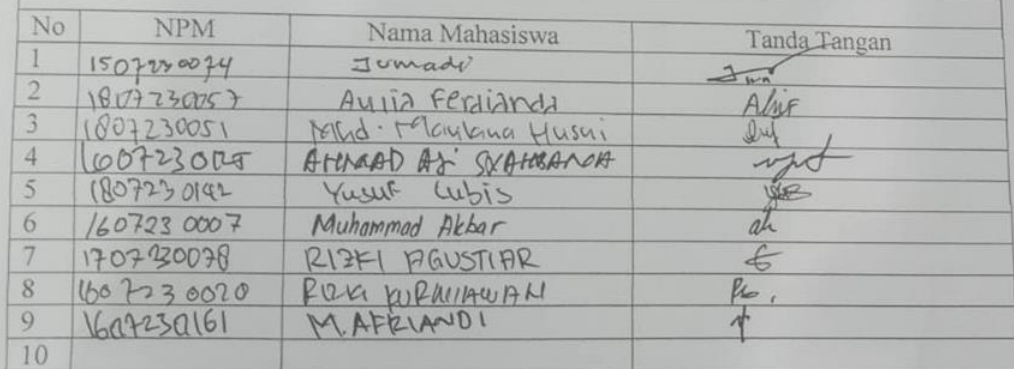 No NPM Nama Mahasiswa Tanda Tangan
1 1507230074 Jumadi
2 1807230057 Aulia Ferdianda Alif
3 1807230051 Mhd. Maulana Husni
4 AHMAD AJI SYAHBANA
5 1807230142 Yusuf Lubis
6 1607230007 Muhammad Akbar
7 1707230078 RIZKI AGUSTIAR
8 1607230020 RIZKI KURNIAWAN
9 1607230161 M. AFRIANDI
10